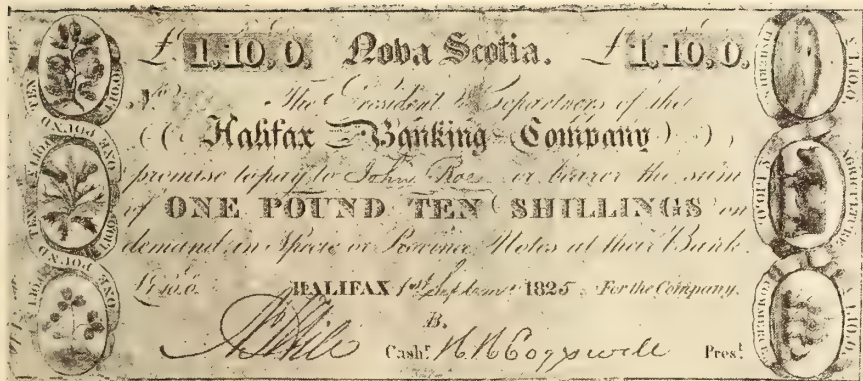 £ 1,10,0. Nova Scotia. £ 1,10,0.
No. The President & Copartners of the
Halifax Banking Company
promise to pay to John Roe or bearer the sum
of ONE POUND TEN SHILLINGS on
demand in Specie or Province Notes at their Bank.
£1,10,0. HALIFAX 1st Septemr 1825 For the Company.
B.
Cashr. H H Cogswell Prest.
ONE POUND TEN
AGRICULTURE